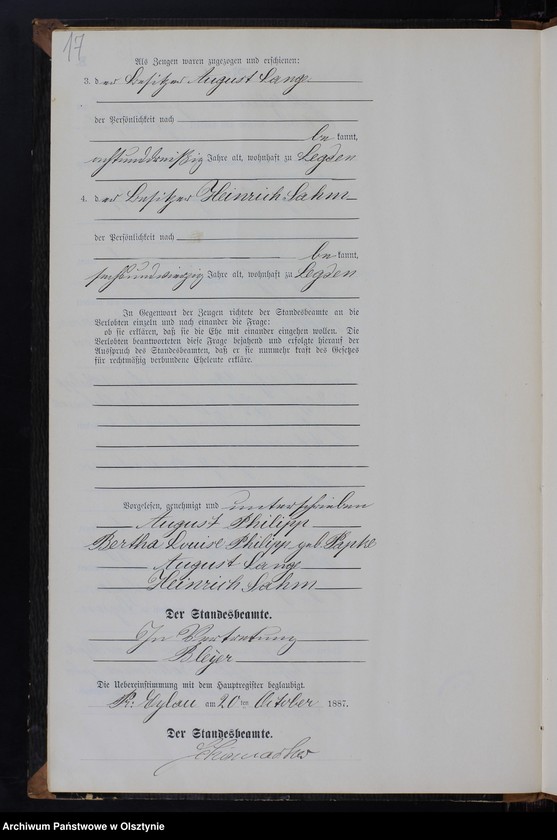 17
Als Zeugen waren zugezogen und erschienen:
3. der Besitzer August Lange
der Persönlichkeit nach
be kannt,
achtunddreißig Jahre alt, wohnhaft zu Legden
4. der Besitzer Heinrich Sahm
der Persönlichkeit nach
be kannt,
sechsundvierzig Jahre alt, wohnhaft zu Legden
In Gegenwart der Zeugen richtete der Standesbeamte an die
Verlobten einzeln und nach einander die Frage:
ob sie erklären, daß sie die Ehe mit einander eingehen wollen. Die
Verlobten beantworteten diese Frage bejahend und erfolgte hierauf der
Ausspruch des Standesbeamten, daß er sie nunmehr kraft des Gesetzes
für rechtmäßig verbundene Eheleute erkläre.
Vorgelesen, genehmigt und unterschrieben
August Philipp
Bertha Louise Philipp geb.
August Lange
Heinrich Sahm
Der Standesbeamte.
In Vertretung
Bleyer
Die Uebereinstimmung mit dem Hauptregister beglaubigt.
Pr: Eylau am 20 ten October 1887.
Der Standesbeamte.
Archiwum Państwowe w Olsztynie